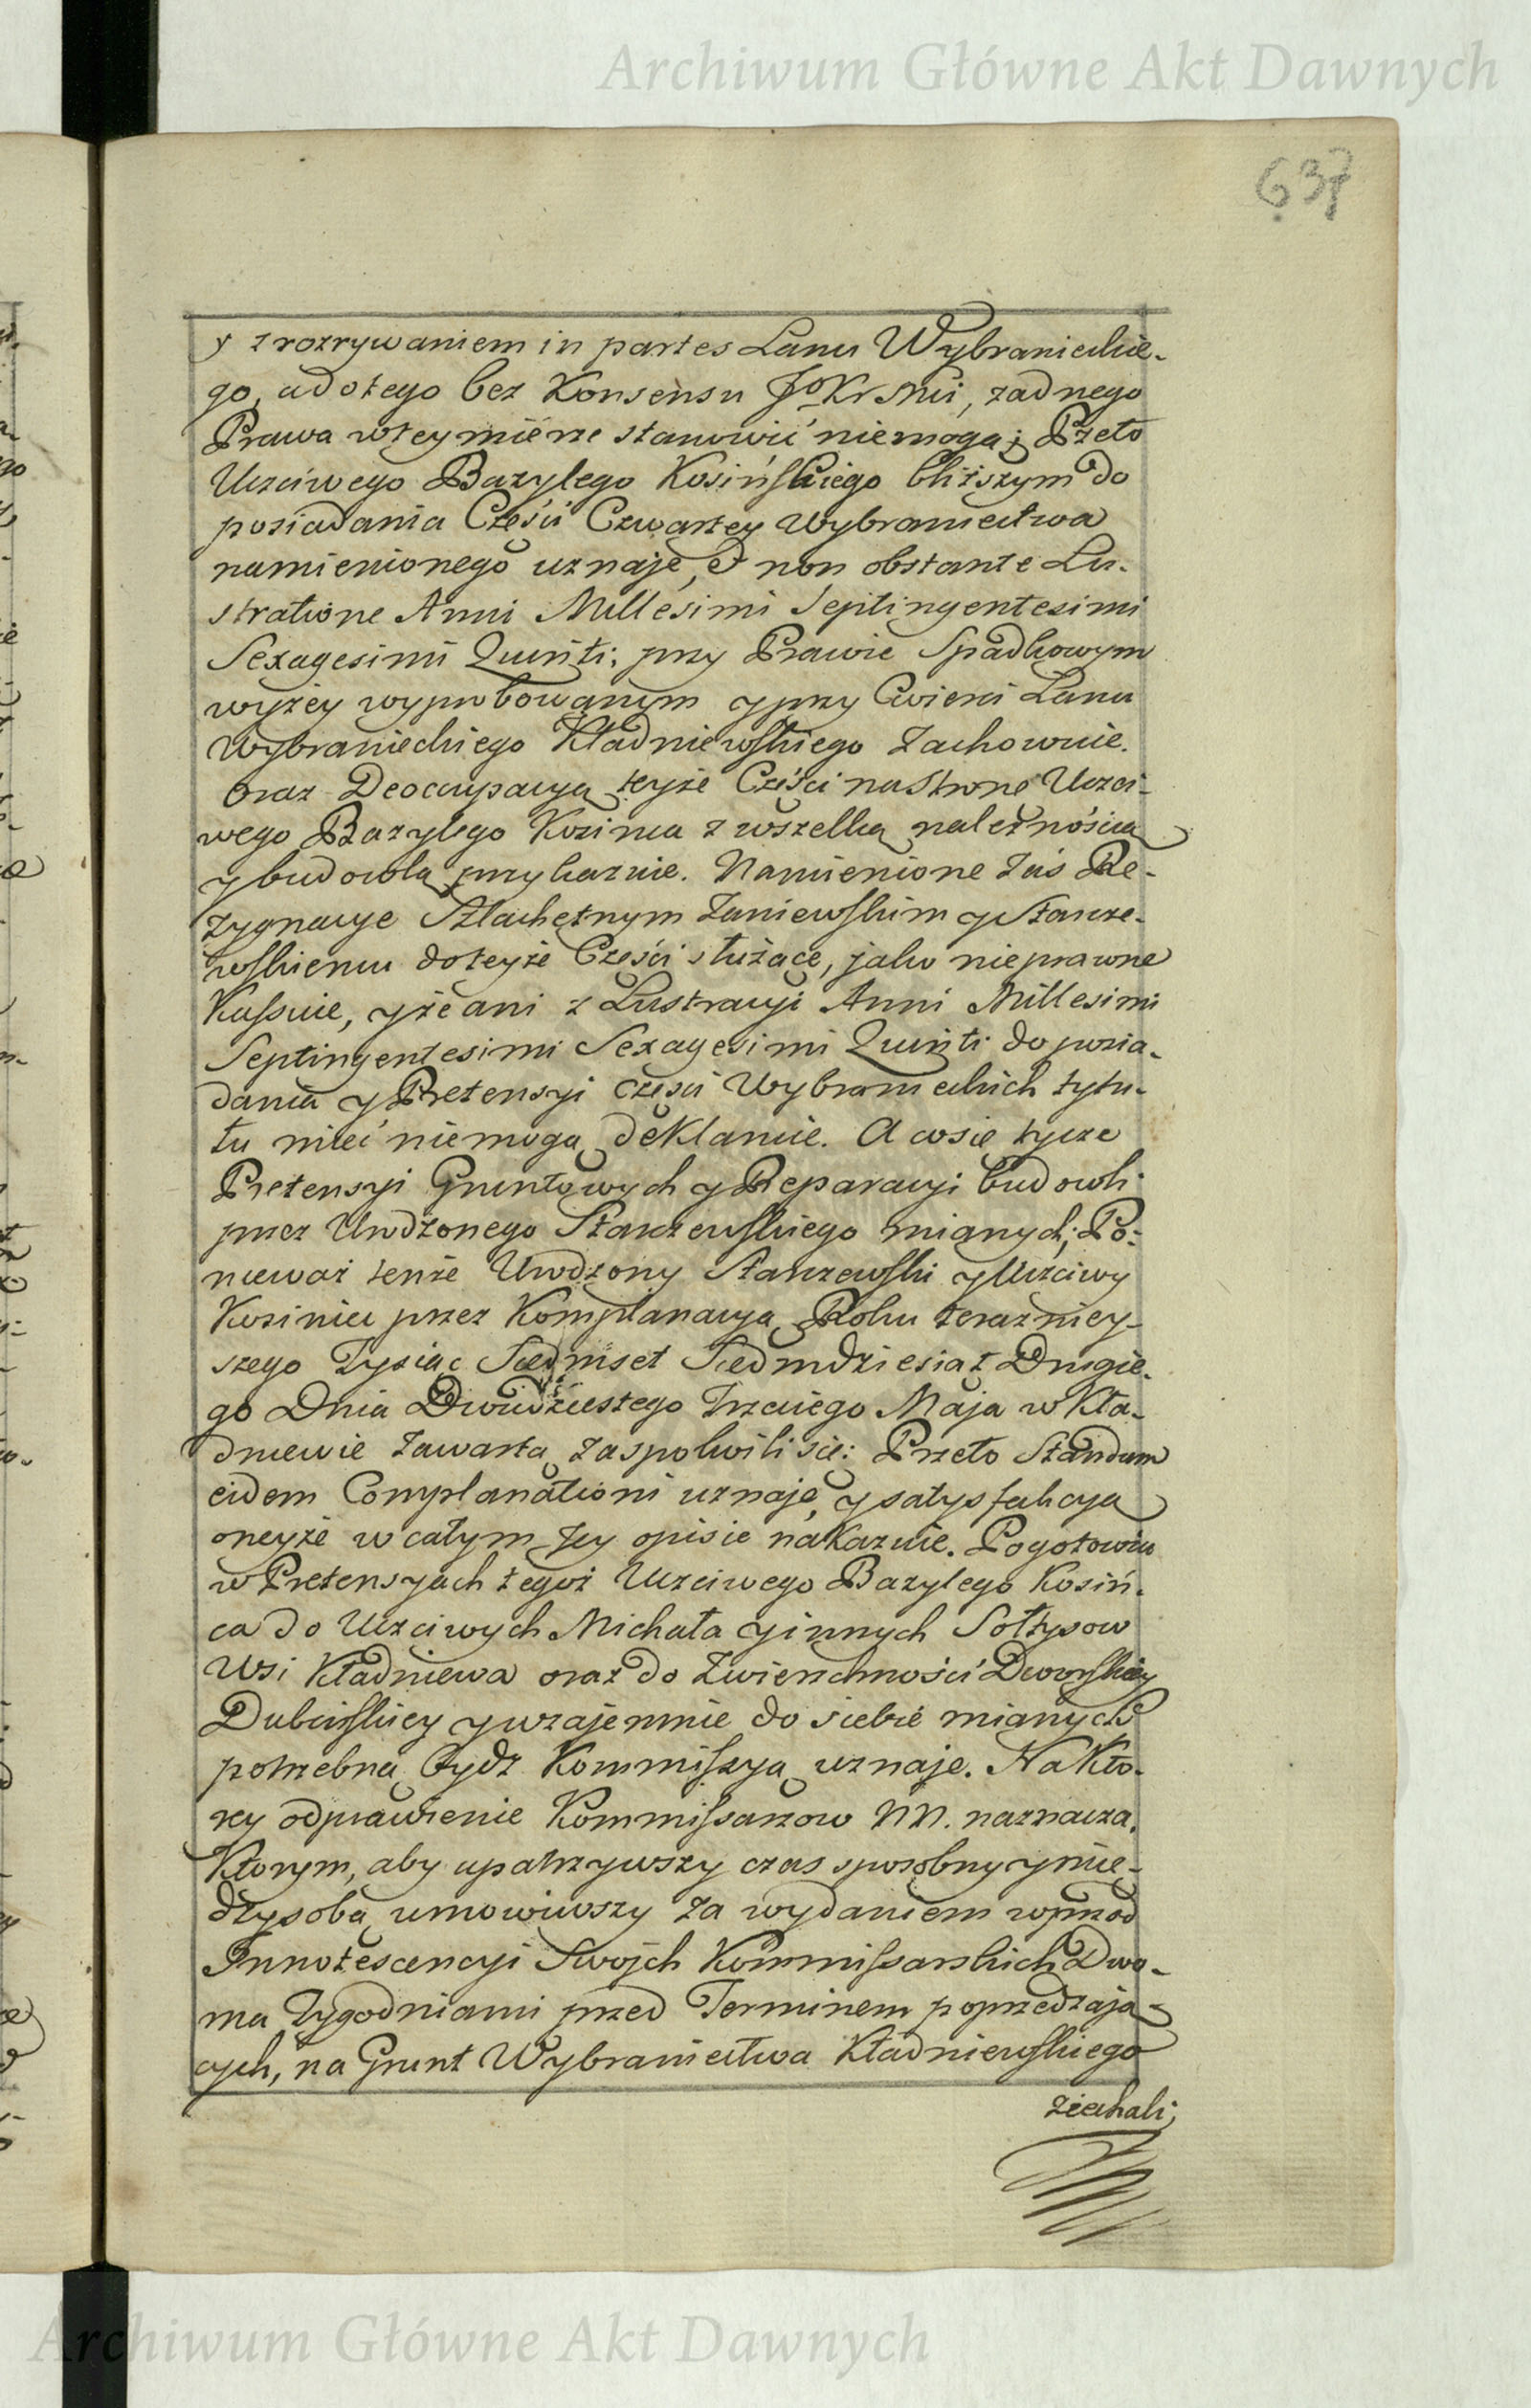 Archiwum Główne Akt Dawnych
637
y z rozrywaniem in partes Lanu Wybranieckie-
go, a dotego bez Konsensu JoKrMci, zadnego
Prawa wtey mierze stanowić niemogą; Przeto
Uczciwego Bazylego Kosińskiego bliższym do
posiadania Części Czwartey Wybraniectwa
namienionego uznaje, & non obstante Lu-
stratione Anni Millesimi Septingentesimi
Sexagesimi Quinti; przy Prawie Spadkowym
wyżey wyprobowanym y przy Cwierci Lanu
Wybranieckiego Kładniewskiego Zachowuie.
Oraz Deoccupacyą teyże Części na Stronę Uczci-
wego Bazylego Kozinca z wszelką należnością
y budowlą przykazuie. Namienione Zaś Re-
zygnacye Szlachetnym Zaniewskim y Starze-
wskiemu do teyże Części służące, jako nieprawne
Kassuie, y że ani z Lustracyi Anni Millesimi
Septingentesimi Sexagesimi Quinti do posia-
dania y Pretensyi części Wybranieckich tytu-
łu mieć niemogą deklaruie. A co się tycze
Pretensyi Gruntowych y Reparacyi budowli
przez Urodzonego Starzewskiego mianych; Po-
nieważ tenże Urodzony Starzewski y Uczciwy
Koziniec przez Komplanacyą Roku teraźniey-
szego Tysiąc Siedmset Siedmdziesiąt Drugie-
go Dnia Dwudziestego Trzeciego Maja w Kła-
dniewie Zawartą zaspokoili się: Przeto Standum
eidem Complanationi uznaje, y satysfakcyą
oneyże w całym Jey opisie nakazuie. Pogotowiu
w Pretensyach tegoż Uczciwego Bazylego Kosiń-
ca do Uczciwych Michała y innych Sołtysow
Wsi Kładniewa oraz do Zwierzchności Dworskiey
Dubinskiey y wzajemnie do siebie mianych
potrzebną bydz Kommissyą uznaje. Na Kto-
rey odprawienie Kommissarzow NN. naznacza.
Ktorym, aby upatrzywszy czas sposobny y mie-
dzy sobą umowiwszy za wydaniem wprzod
Innotescencyi Swojch Kommissarskich Dwo-
ma Tygodniami przed Terminem poprzedzają-
cych, na Grunt Wybraniectwa Kładniewskiego
ziechali;
Archiwum Główne Akt Dawnych